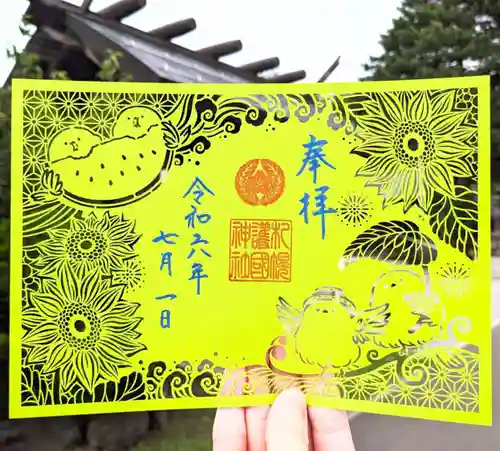 奉拝
札幌
護國
神社
令和六年
七月一日